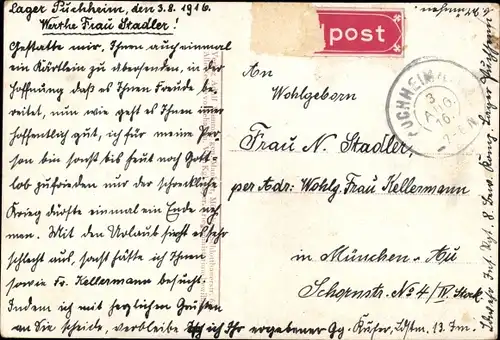 Lager Puchheim, den 3.8.1916.
Werthe Frau Stadler!
Gestatte mir, Ihnen auch einmal
ein Kärtlein zu übersenden, in der
Hoffnung daß es Ihnen Freude be-
reitet, nun wie geht es Ihnen immer
hoffentlich gut, ich für meine Per-
son bin sonst bis heut noch Gott-
lob zufrieden nur der schreckliche
Krieg dürfte einmal ein Ende neh-
men. Mit den Urlaub sieht es sehr
schlecht aus, sonst hätte ich Ihnen
sowie Fr. Kellermann besucht.
Indem ich mit herzlichen Grüssen
an Sie scheide, verbleibe ich Ihr ergebener Gg. Käufer, Ldstm. 13. Im.
post
PUCHHEIM
3
AUG.
16.
7-8 N
An
Wohlgeborn
Frau N. Stadler,
per Adr: Wohlg. Frau Kellermann
in München-Au
Schornstr. No 4/IV. Stock
Lager Puchheim